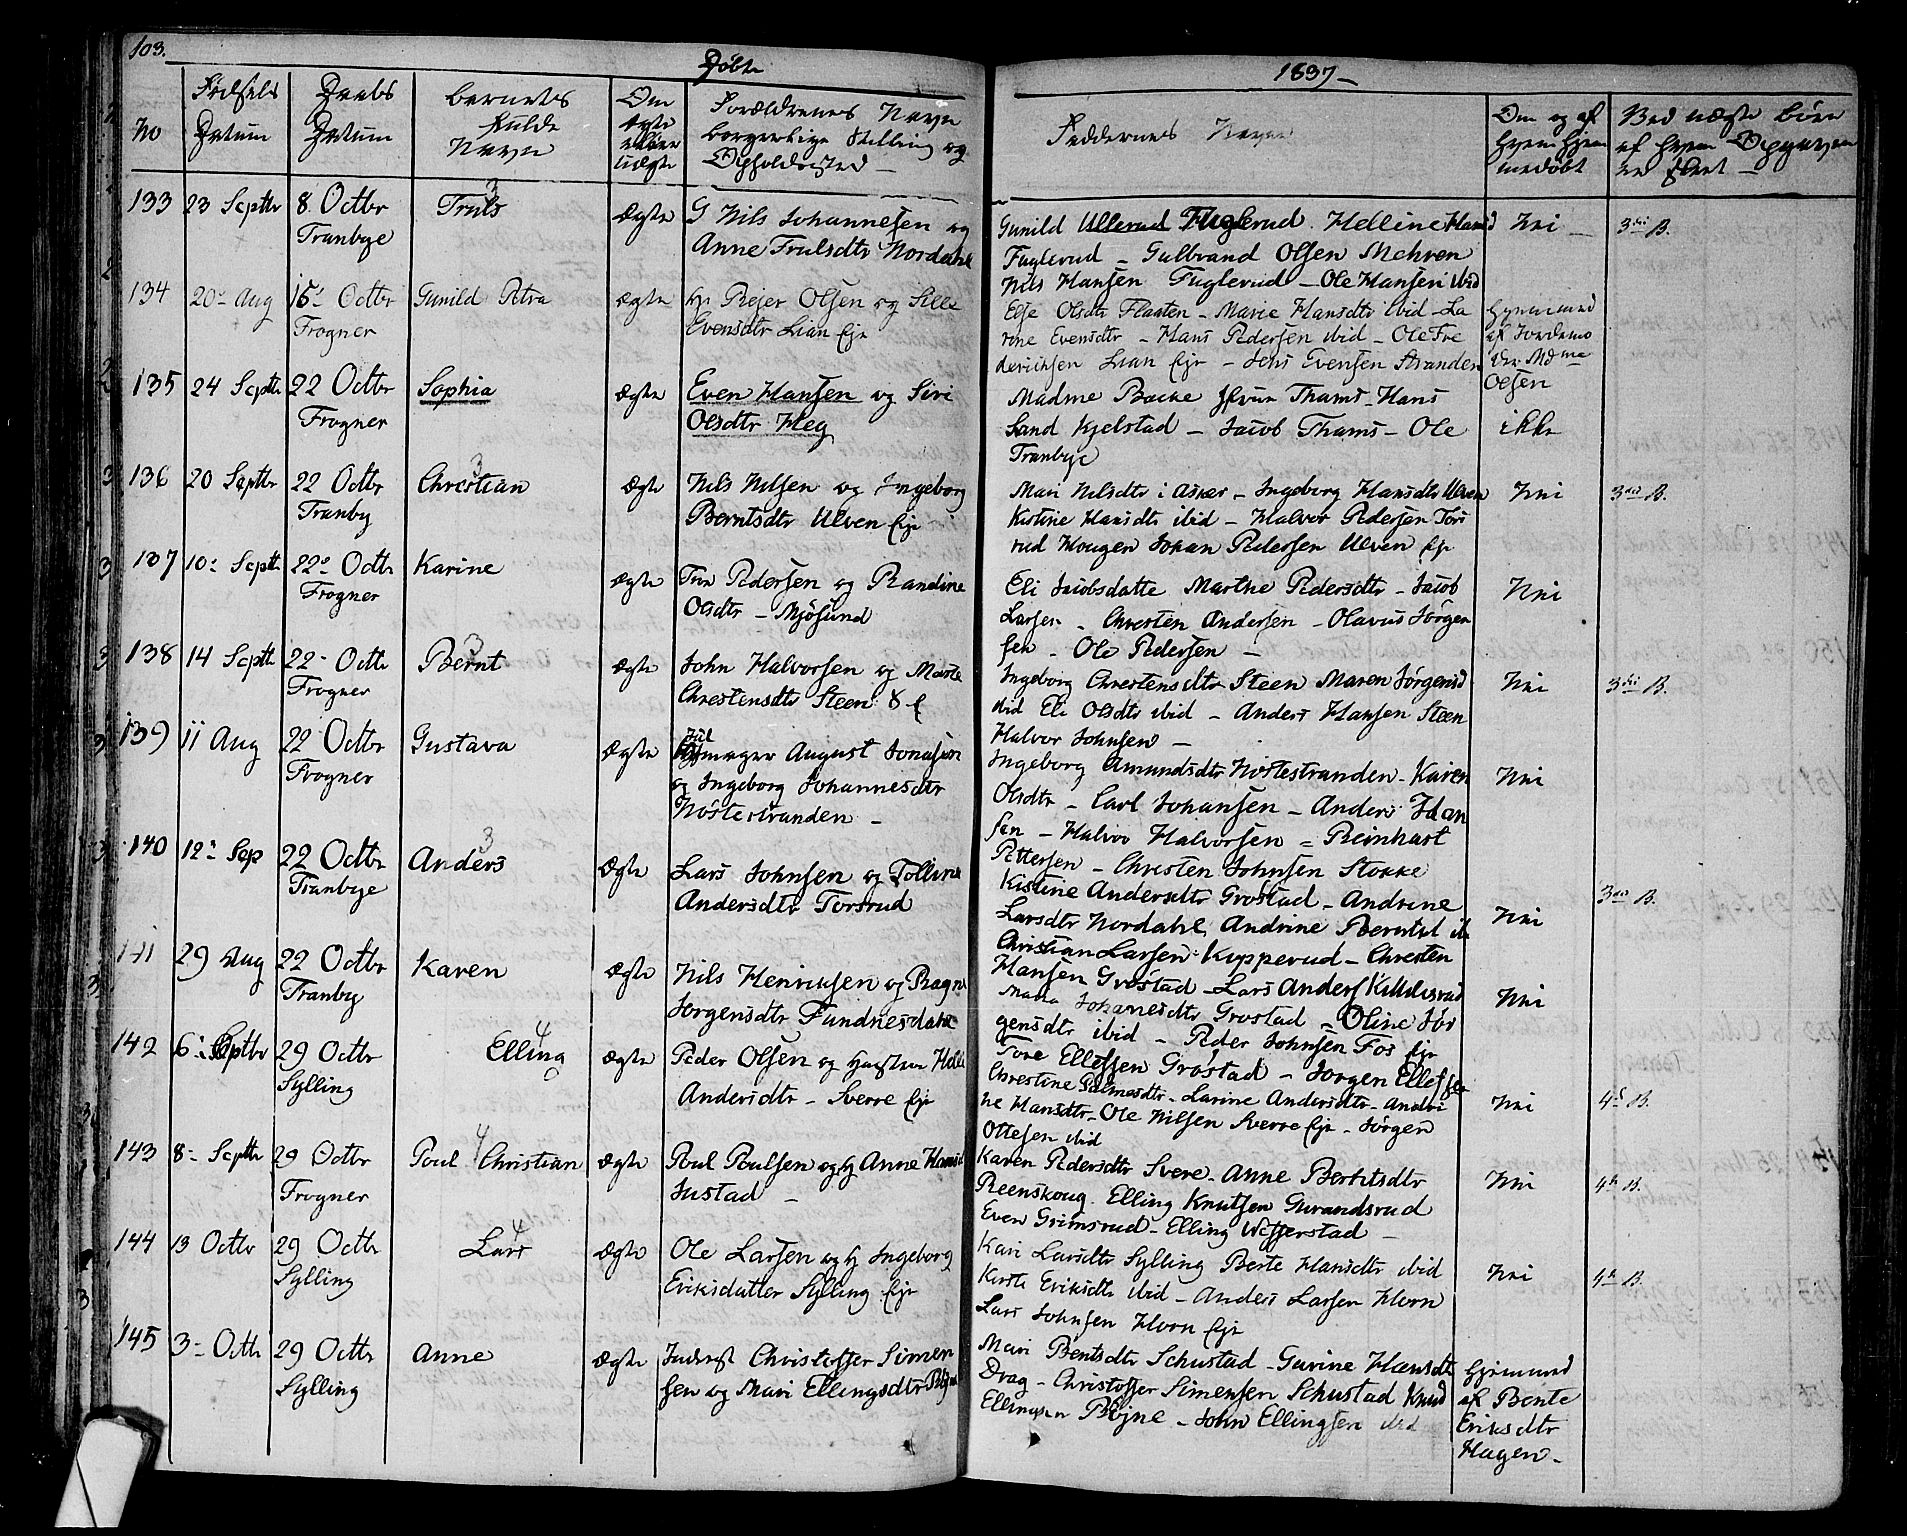 103.
Døbte
1837 –
No
Fødsels
Datum
Daabs
Datum
Barnets
fulde
Navn
Om
ægte
eller
uægte
Forældrenes Navn
borgerlige Stilling og
Opholdssted –
Faddernes Navne
Om og af
hjemmedøbt
133 23 Septbr 8 Octbr Truls Ægte G Nils Johannesen og
Tranbye Anne Trulsdtr Nordahl
3
Gunild Fuglerud Helline Hansd Nei – 3die B.
Fuglerud – Gulbrand Olsen Mehren
Nils Hansen Fuglerud – Ole Hansen ibid
134 20 Aug 15 Octbr Gunild Petra ægte Rejer Olsen og Sille
Frogner Evensdtr Lian Eje
Else Olsdtr Flaaten – Marie Hansdtr ibid – La
rine Evensdtr – Hans Pedersen ibid – Ole Fre
derichsen Lian Eje – Jens Evensen Stranden
Hjemmed
af Jordemo
der Mdme
Olsen
135 24 Septbr 22 Octbr Sophia ægte Even Hansen og Siri
Frogner Olsdtr Heg
Madme Backe Thams – Hans
Sand Kjelstad – Jacob Thams – Ole ikke
Tranbye
136 20 Septbr 22 Octbr Christian ægte Nils Nilsen og Ingeborg
Tranby Berntsdtr Ulven Eje
3
Mari Nilsdtr i Asker – Ingeborg Hansdtr Ulven Nei 3die B.
Kistine Hansdtr ibid – Halvor Pedersen Tors
rud Hougen Johan Pedersen Ulven Eje
137 10 Septbr 22 Octbr Karine Ægte Pedersen og Randine
Frogner Olsdtr – Mjøsund
Eli Jacobsdatte Marthe Pedersdtr – Jacob Nei
Larsen – Christen Andersen – Olavus Jørgen
sen – Ole Pedersen –
138 14 Septbr 22 Octbr Bernt Ægte John Halvorsen og Marte
Frogner Christensdtr Steen
3
Ingeborg Christensdtr Steen Maren Jørgensd Nei 3die B.
ibid Eli Olsdtr ibid – Anders Hansen Steen
Halvor Johnsen –
139 11 Aug 22 Octbr Gustava Ægte August Jonasson
Frogner og Ingeborg Johannesdtr
Nøstestranden –
Ingeborg Amundsdtr Nøstestranden – Karen Nei
Olsdtr – Carl Johansen – Anders Han
sen – Halvor Halvorsen – Reinhart
Pettersen – Christen Johnsen Stokke
140 12 Sep 22 Octbr Anders Ægte Lars Johnsen og Tolline
Tranbye Andersdtr Torsrud
3
Kistine Andersdtr Grøstad – Andrine 3die B.
Larsdtr Nordahl Andrine Berntsd Nei
Christian Larsen Kopperud – Christen
Hansen Grøstad – Lars Anders
141 29 Aug 22 Octbr Karen Ægte Nils Henriksen og Ragne
Tranby Jørgensdtr
Maria Johannesdtr Grøstad – Oline Jør Nei
gensdtr ibid – Peder Johnsen Fos Eje
Tore Ellefsen Grøstad – Jørgen Ellefsen
142 6 Septbr 29 Octbr Elling ægte Peder Olsen og Hustru
Sylling Andersdtr – Sverre Eje
4
Christine Palmesdtr – Larine Andersdtr – Andri
ne Hansdtr – Ole Nilsen Sverre Eje – Jørgen Nei 4de B.
Ottesen ibid
143 8 Septbr 29 Octbr Poul Christian ægte Poul Poulsen og H Anne Hansd
Frogner Justad –
4
Karen Pedersdtr Svere – Anne Berntsdtr Nei 4de B.
Reenskoug – Elling Knutsen Gurandsrud
Even Grimsrud – Elling Wefferstad –
144 13 Octbr 29 Octbr Lars ægte Ole Larsen og H Ingeborg
Sylling Eriksdatter Sylling Eje
4
Kari Larsdtr Sylling Berte Hansdtr ibid Nei 4de B.
Kirsti Eriksdtr ibid – Anders Larsen Horn
Lars Johnsen Horn Eje
145 3 Octbr 29 Octbr Anne ægte Christoffer Simen
Sylling sen og Mari Ellingsdtr
Mari Bentsdtr Schustad – Gurine Hansdtr
Drag – Christoffer Simensen Schustad Knud
Ellingsen Bøjne – John Ellingsen ibid
Hjemmed
af Bente
Eriksdtr
Hagen –